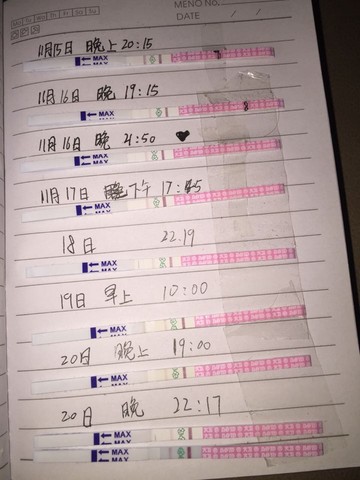 MENO No.
DATE / /
11月15日 晚上 20:15
MAX
11月16日 晚 19:15
MAX
11月16日 晚 21:50
MAX
11月17日 下午 17:45
MAX
18日 22.19
MAX
19日 早上 10:00
MAX
20日 晚上 19:00
MAX
20日 晚 22:17
MAX
MAX